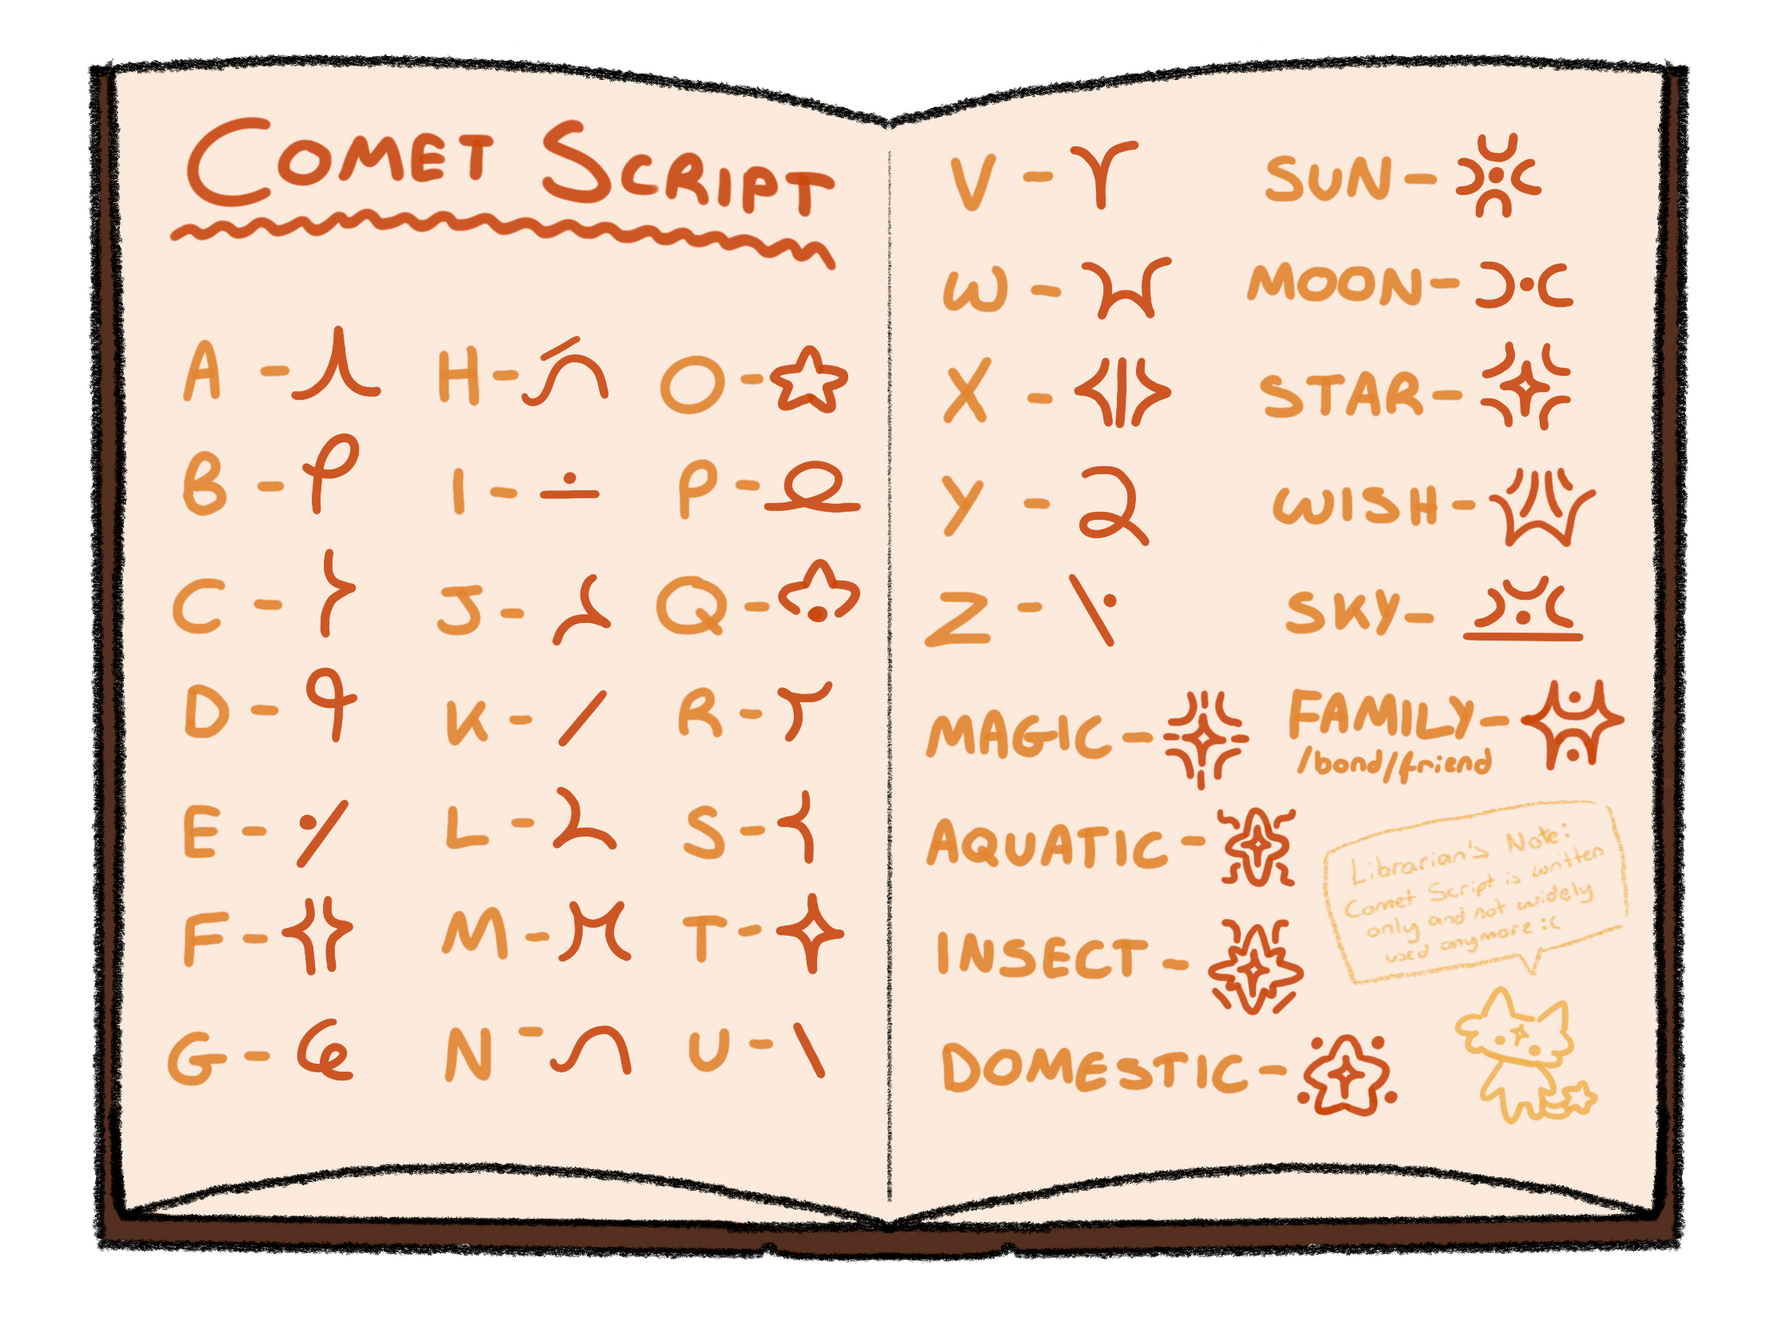 COMET SCRIPT
A -
B -
C -
D -
E -
F -
G -
H -
I -
J -
K -
L -
M -
N -
O -
P -
Q -
R -
S -
T -
U -
V -
W -
X -
Y -
Z -
MAGIC -
AQUATIC -
INSECT -
DOMESTIC -
SUN -
MOON -
STAR -
WISH -
SKY -
FAMILY -
/bond/friend
Librarian's Note:
Comet Script is written
only and not widely
used anymore :(